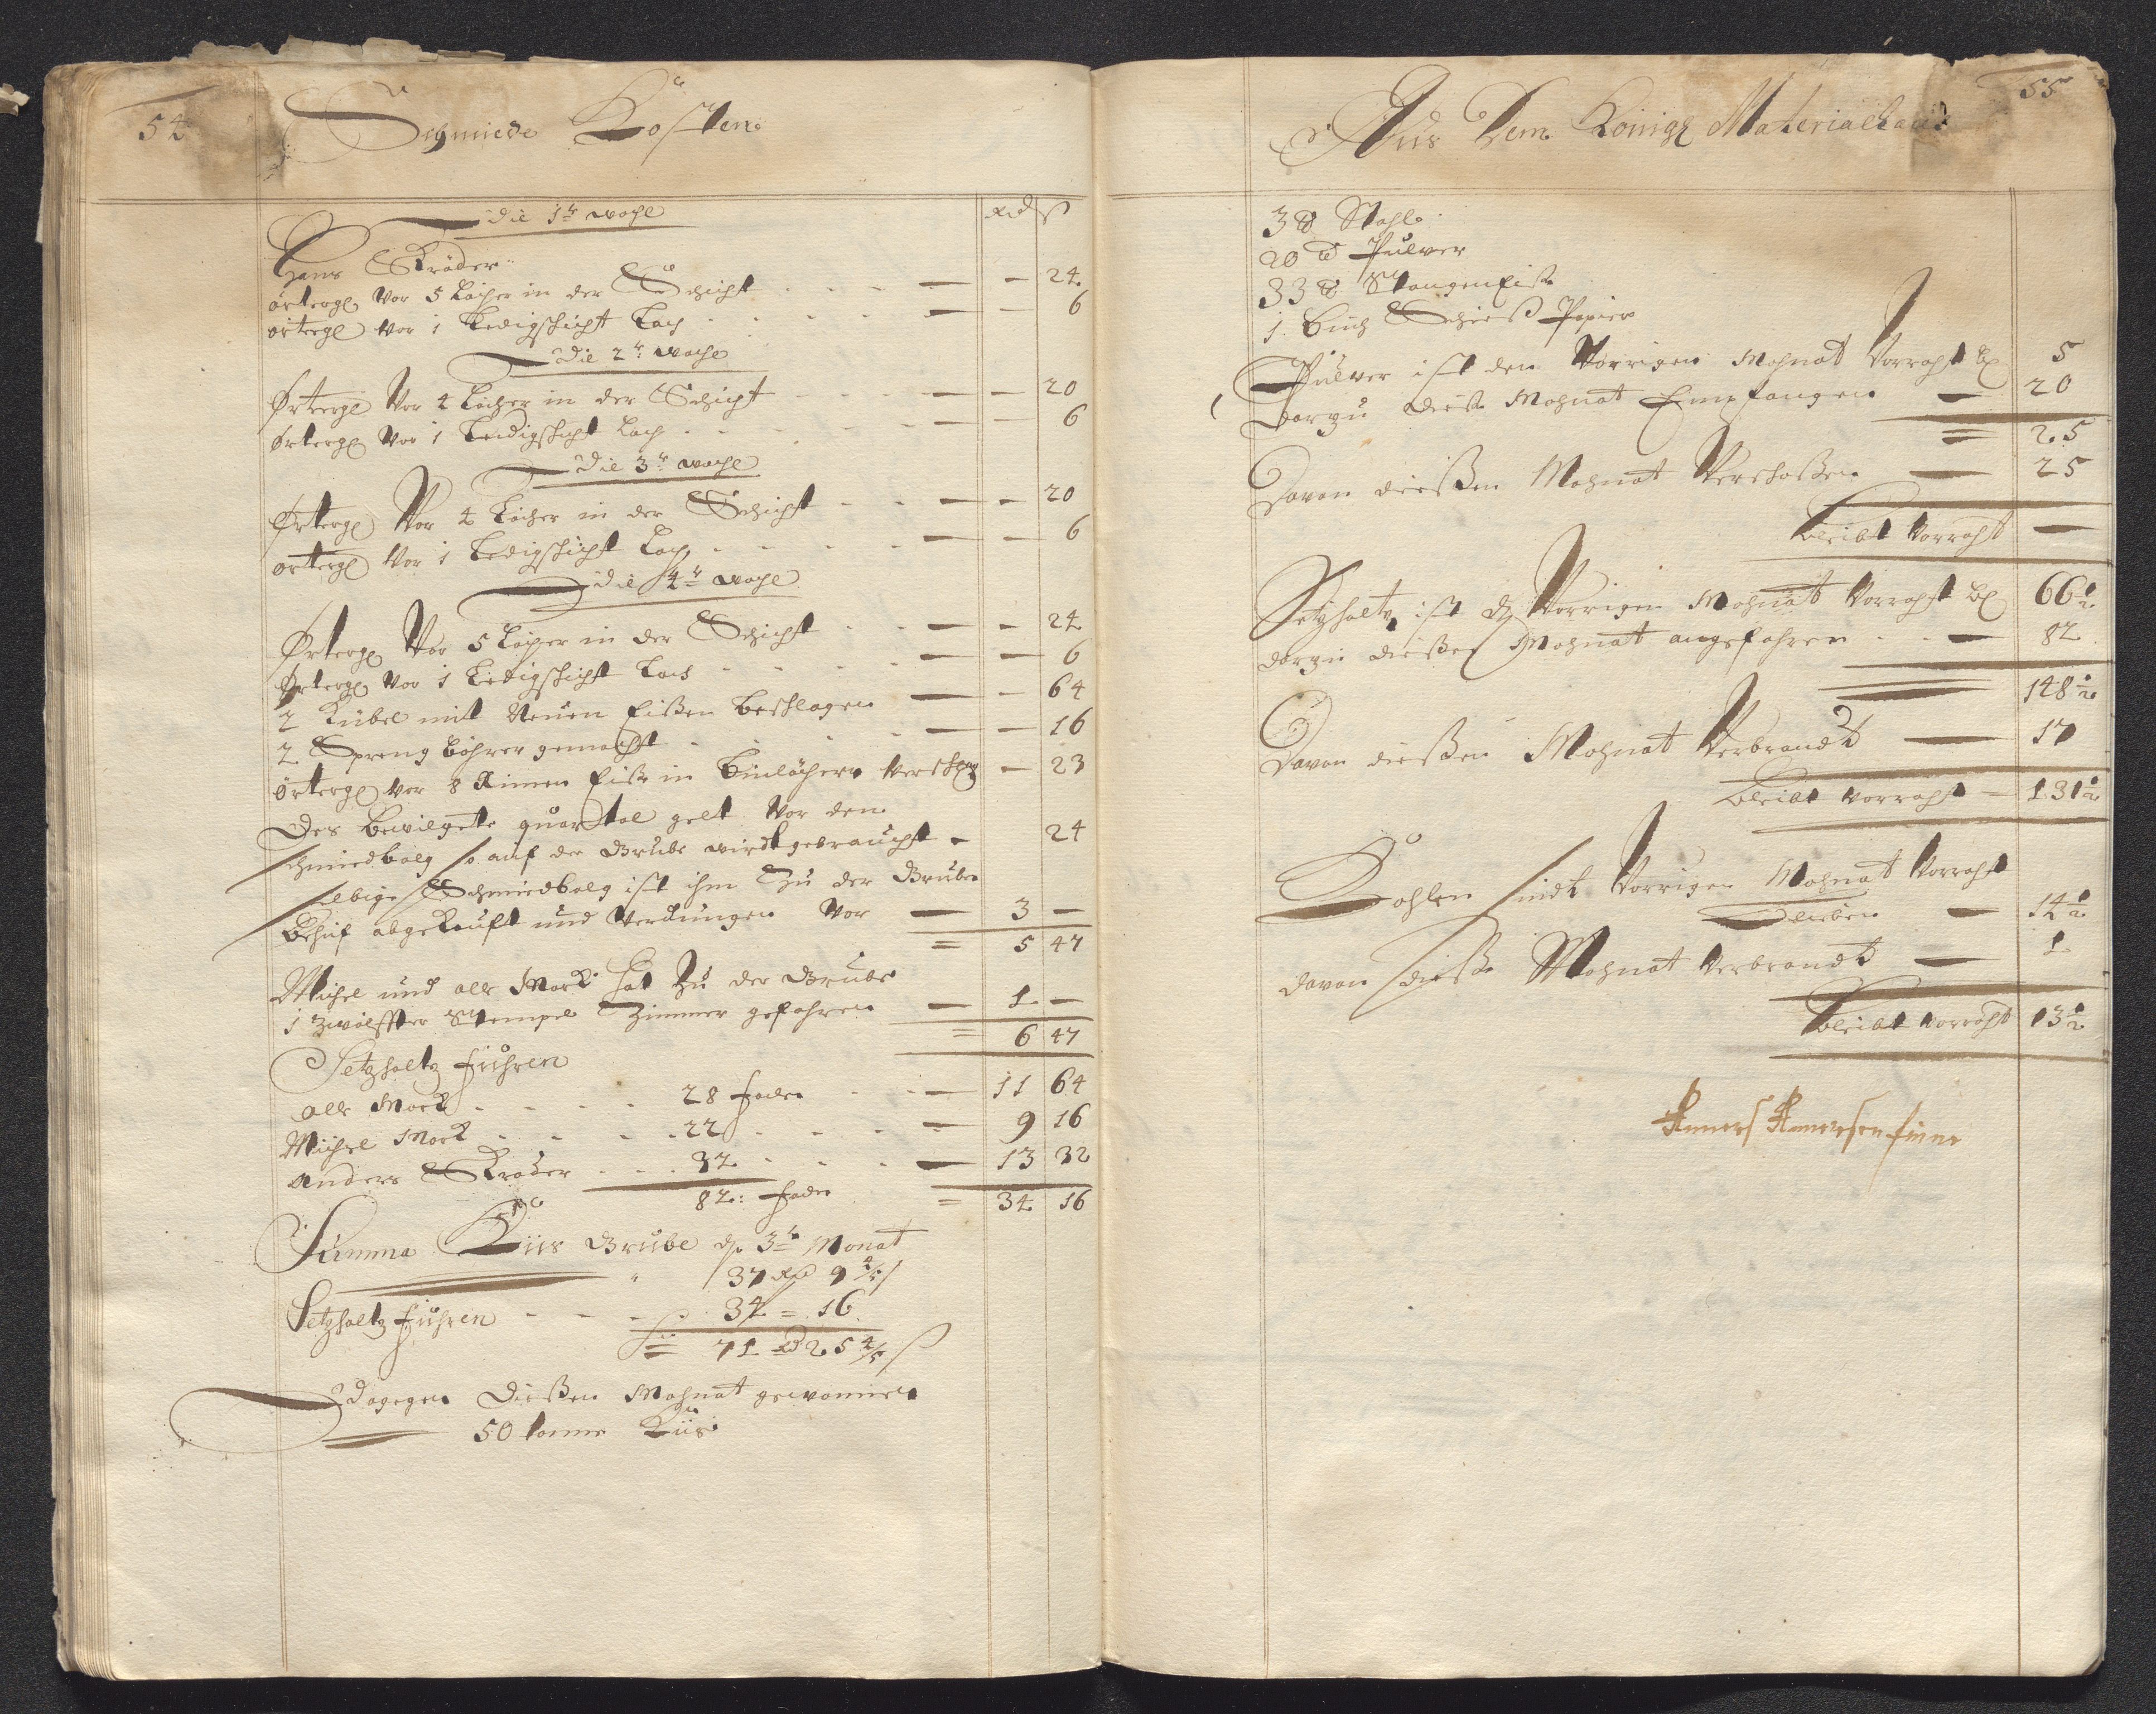 54
Schmiede Kosten
Die 1te Woche
Rd ß
Hans Schröder
örtergl vor 5 Löcher in der Schicht - 24
örtergl vor 1 Ledigschicht Loch - 6
Die 2te Woche
Örtergl Vor 4 Löcher in der Schicht - 20
örtergl Vor 1 Ledigschicht Loch - 6
Die 3te Woche
Örtergl Vor 4 Löcher in der Schicht - 20
örtergl Vor 1 Ledigschicht Loch - 6
Die 4te Woche
Örtergl Vor 5 Löcher in der Schicht - 24
Örtergl Vor 1 Ledigschicht Loch - 6
2 Kübel mit Neuen Eißen beschlagen - 64
2 Spreng Bohrer gemacht - 16
örtergl vor 8 Eiße in - 23
Des bewilgete quartal gelt Vor den
schmiedbalg so auf der Grube wirdt gebraucht - 24
selbige Schmiedbalg ist ihm Zu der Grube
Behuf abgekauft und Verdungen Vor - 3 -
= 5 47
Michel und alle Mock hat Zu der Grube
1 Zwölffter Stempel Zimmer gefahren - 1 -
= 6 47
Setzholtz führen
alle Mock - 28 faden - 11 64
Michel Mock - 22 - 9 16
Anders Schröder - 32 - 13 32
82: faden = 34 16
Summa Kiis Grube d. 3te Monat
37 Rd 9 4/5 ß
Setzholtz führen - 34 = 16
= 71 Rd 25 4/5 ß
Dagegen Dießen Mohnat gewonnen
50 tonne Kiis
55
Aus Dem Königl Materialhaus
3 ℔ Stahl
20 ℔ Pulver
33 ℔ Stangen Eiß
1 Buch Schieß Papier
Pulver ist den Vorrigen Mohnat Vorraht bl 5
Darzu dieße Mohnat Empfangen - 20
= 25
Davon dießen Mohnat Verschoßen - 25
bleibt Vorraht -
Setzholtz ist d Vorrigen Mohnat Vorraht bl 66 1/2
darzu dießen Mohnat angefahren - 82
148 1/2
Davon dießen Mohnat Verbrandt - 17
bleibt vorraht - 131 1/2
Kohlen sindt Vorrigen Mohnat Vorraht
blieben - 14 1/2
davon dieße Mohnat verbrandt - 1
bleibt vorraht 13 1/2